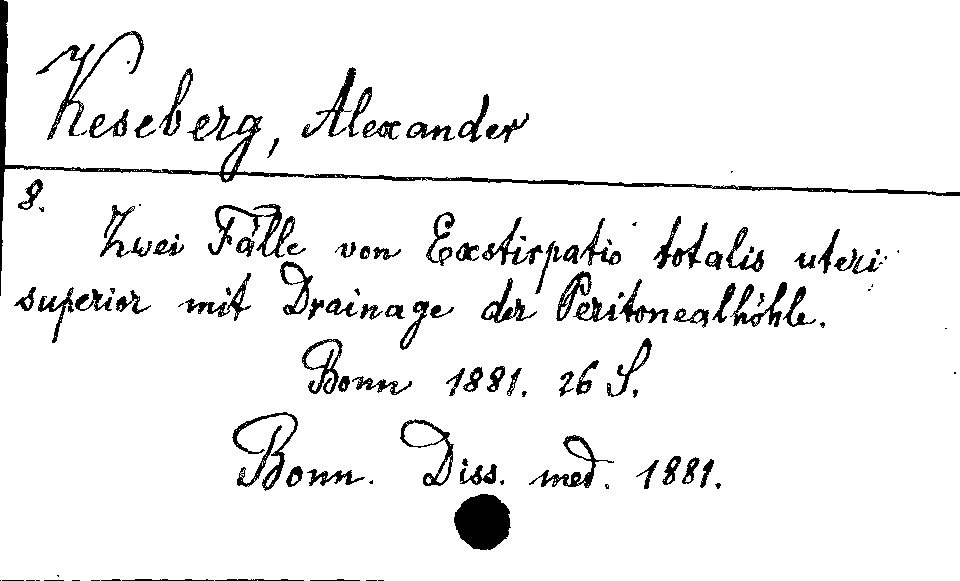 Keseberg, Alexander
8.
Zwei Fälle von Exstirpatio totalis uteri
superior mit Drainage der Peritonealhöhle.
Bonn 1881. 26 S.
Bonn. Diss. med. 1881.